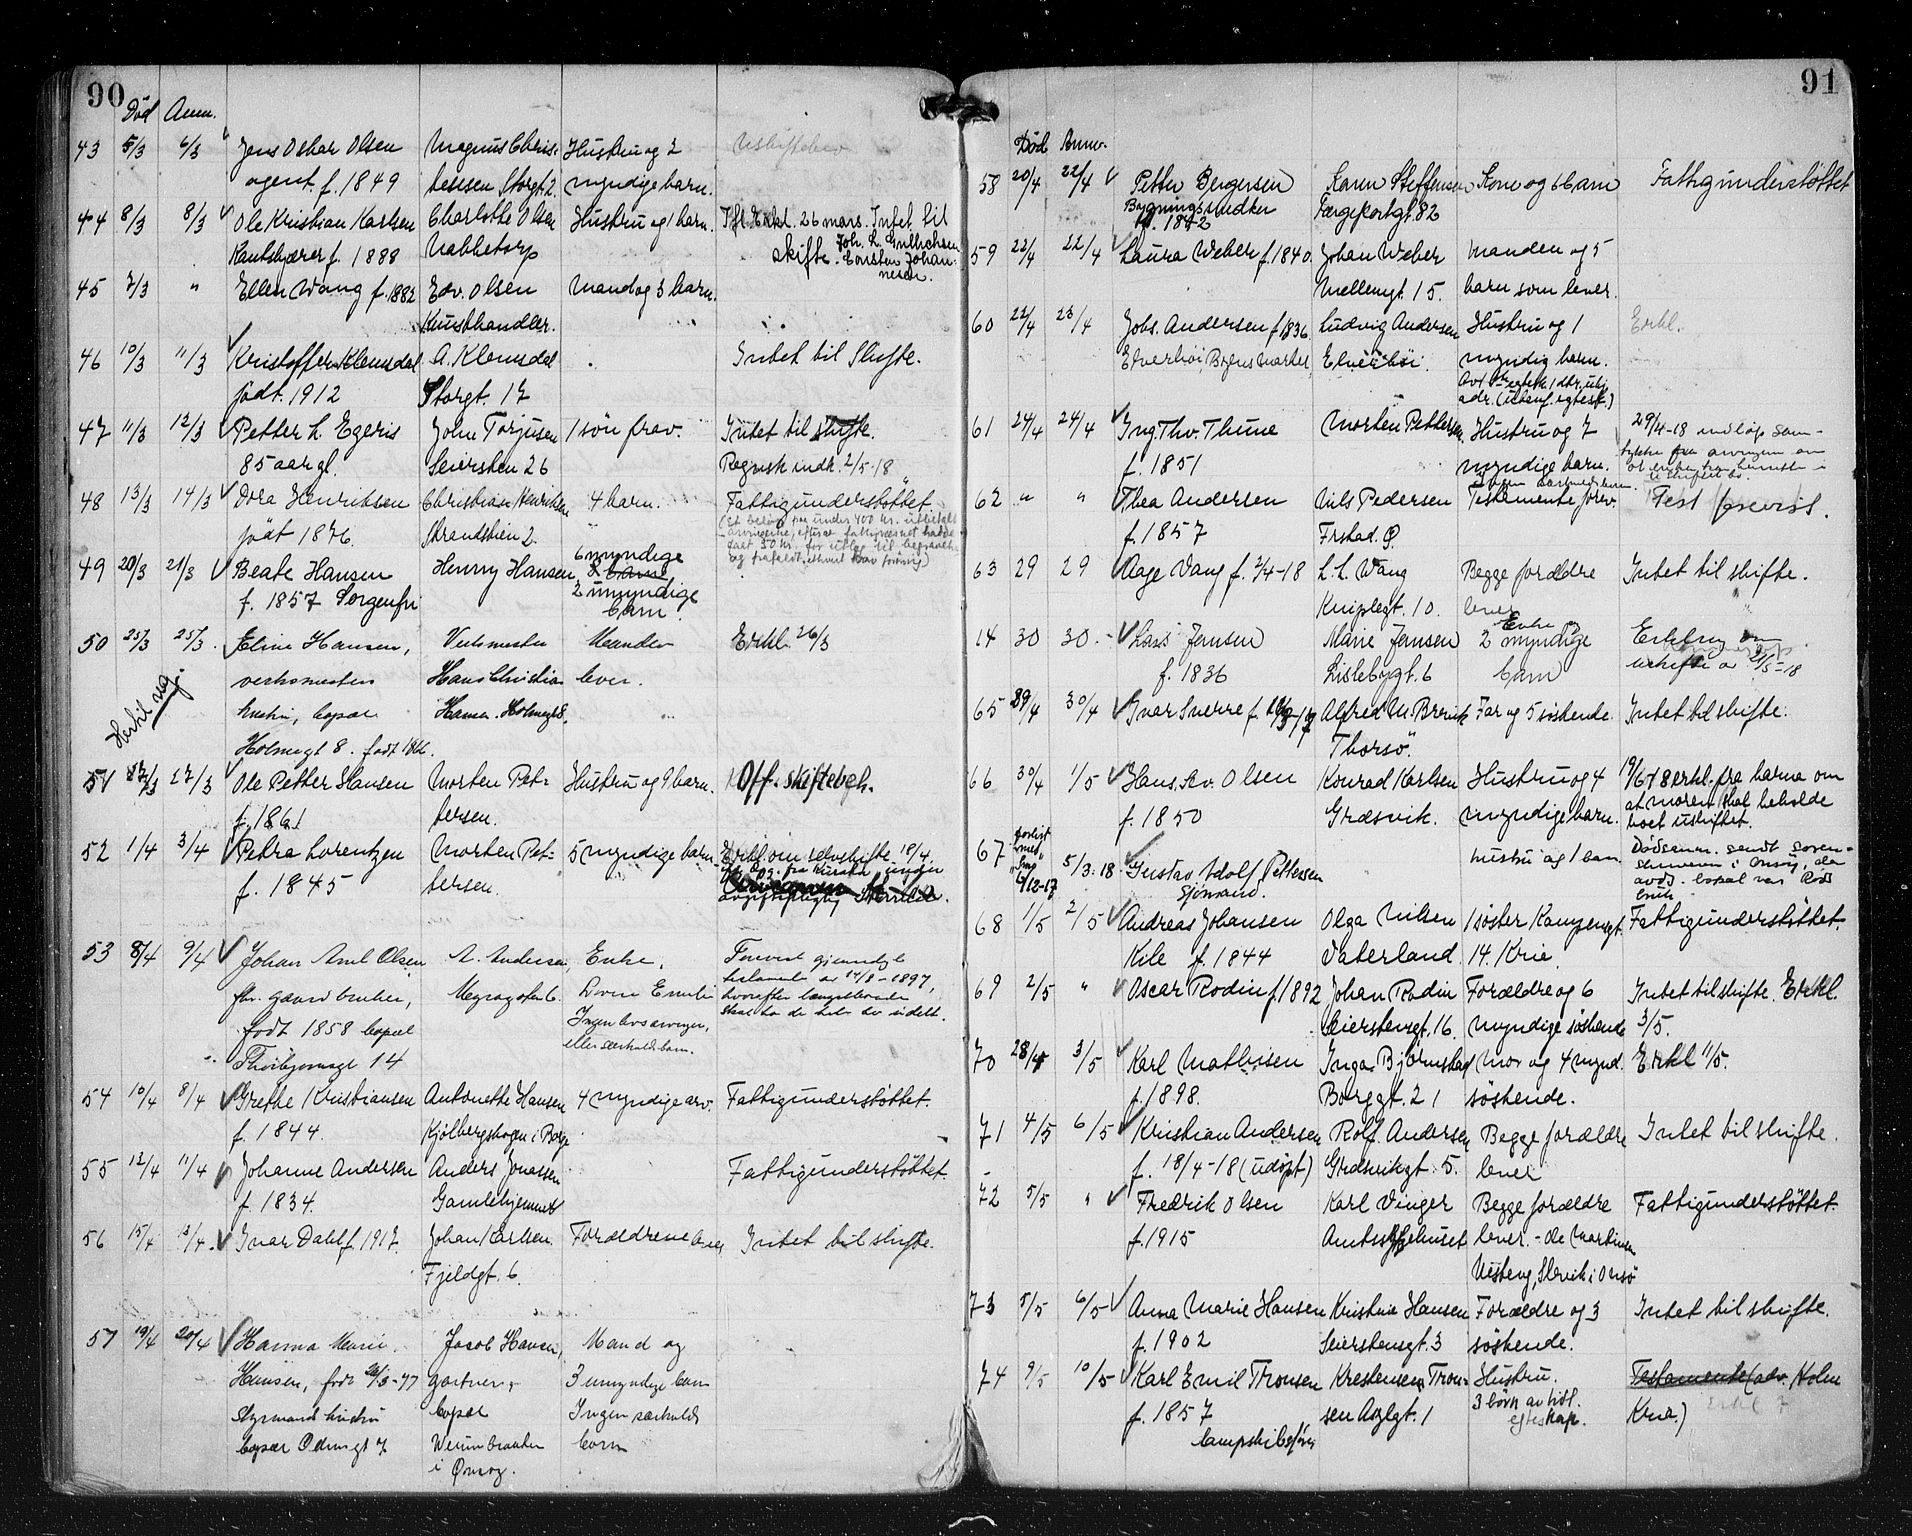 90
Død Anm.
43 5/3 6/3 Jens Oskar Olsen Magnus Chris- Hustru og 2 Uskiftebev
agent. f. 1849 tensen Storgt. 2. myndige barn.
44 8/3 8/3 Ole Kristian Karlsen Charlotte Olsen Hustru og 1 barn. Tlf. Erkl. 26 mars. Intet til
f. 1888 Nabbetorp skifte. Joh. L. Carsten Johan-
nesen.
45 7/3 " Ellen Wang f. 1882 Edv. Olsen Mand og 3 barn.
Kunsthandler.
46 10/3 11/3 Kristoffer Klemsdal A. Klemsdal Intet til Skifte.
født. 1912 Storgt. 17
47 11/3 12/3 Petter L. Egeris John Torjusen 1 søn frav. Intet til skifte.
85 aar gl. Seiersten 26 Regnsk indk. 2/5-18
48 13/3 14/3 Dora Henriksen Christian Henriksen 4 barn. Fattigunderstøttet
født 1876. Strandstien 2. (Et beløp paa under 400 kr. utbetalt
arvingerne, efterat fattigvæsnet hadde
faat 50 kr. for utlæg til begravelse
49 20/3 21/3 Beate Hansen Henry Hansen 6 myndige
f. 1857 Sorgenfri 2 umyndige
barn.
50 25/3 25/3. Eline Hansen, Verksmester Manden Erkl. 26/3
verksmester Hans Christian lever.
hustru, bopæl Hansen. Holmegt 8.
Holmegt 8. født
Hertil
51 27/3 27/3 Ole Petter Hansen Morten Pet- Hustru og 9 barn. Off. skiftebeh.
f. 1861 tersen.
52 1/4 3/4 Petra Lorentzen Morten Pet- 5 myndige barn Erkl. om selvskifte 18/4
f. 1845 tersen.
53 8/4 9/4 Johan Aml Olsen A. Andersen, Enke,
fhv. gaardbruker, Lovise Emilie testamente av 14/8-1897,
født 1858 bopæl Ingen livsarvinger, hvorefter længstlevende
14 eller særkuldsbarn. skal ha det hele bo udelt.
54 10/4 8/4 Grethe Kristiansen Antonette Hansen 4 myndige arv. Fattigunderstøttet.
f. 1844. Kjølbergskogen i Borge
55 12/4 11/4 Johanne Andersen Anders Jonassen Fattigunderstøttet.
f. 1834. Gamlehjemmet
56 15/4 15/4. Ivar Dahl f. 1917. Johan Karlsen Forældrene lever Intet til skifte.
Fjeldgt. 6.
57 19/4 20/4 Hanna Marie Jacob Hansen, Mand og
Hansen, født 20/3-77 gartner, 3 umyndige barn
Styrmands hustru bopæl Ingen særkulds
bopæl Odinsgt 7 Werumbraaten barn
i Onsøy.
91
Død Anm.
58 20/4 22/4 Petter Bergersen Karen Steffensen Kone og 6 barn Fattigunderstøttet
Bygningssnedker Færgeportgt. 82
f. 1872
59 22/4 22/4 Laura Weber f. 1840. Johan Weber Manden og 5
Mellemgt. 15. barn som lever.
60 22/4 23/4 Jobs. Andersen f. 1836 Ludvig Andersen Hustru og 1 Erkl.
Elverhøi, Bryns Marker Elverhøi. myndig barn.
adr. (utenf. egtesk.)
61 24/4 24/4 Ing. Thv. Thune Morten Pettersen Hustru og 7 29/4-18 indløp sam-
f. 1851 myndige barn. tykke fra arvingerne om
Ingen særkuldsbarn. at enken kan hensitte i
uskiftet bo.
62 " " Thea Andersen Nils Pedersen Testamente frev. Test forevist.
f. 1857 Frstad. Ø.
63 29 29 Aage Vang f. 3/4-18 L. L. Wang Begge forældre Intet til skifte.
Kniplegt. 10. lever
14 30 30.- Lars Jensen Marie Jensen Enke og 2 myndige Erklæring om
f. 1836 Lislebygt. 6 barn uskifte av 2/5-18
65 29/4 30/4 Ivar Sverre f. Alfred M. Brevik Far og 5 søskende. Intet til skifte.
Thorsø.
66 30/4 1/5 Hans. Kr. Olsen Konrad Karlsen Hustru og 4 19/6-18 erkl. fra barna om
f. 1850 Græsvik. myndige barn. at moren skal beholde
boet uskiftet.
67 forlist med "
6/12-17 5/3-18 Gustav Adolf Pettersen hustru og 1 barn Dødsanm. sendt soren-
Sjømand. skriveren i Onsøy, da
avdø. bopæl var Rods
68 1/5 2/5 Andreas Johansen Olga Nilsen 1 søster Kampengt. Fattigunderstøttet.
Kile f. 1844 Vaterland. 14. Kria.
69 2/5 " Oscar Rodin f. 1892 Johan Rodin Forældre og 6 Intet til skifte. Erkl.
Seierstengt. 16. myndige søskende 3/5.
70 28/4 3/5 Karl Mathisen Inga Bjørnstad Mor og 4 mynd. Erkl 11/5.
f. 1898. Borggt. 21 søskende.
71 4/5 6/5 Kristian Andersen Rolf Andersen Begge forældre Intet til skifte.
f. 18/4-18 (udøpt) Grædsvikgt. 5. lever
72 5/5 " Fredrik Olsen Karl Vinger Begge forældre Fattigunderstøttet.
f. 1915 Amtssykehuset lever. - de Martinsen
Slevik i Onsø
73 5/5 6/5 Anna Marie Hansen Kristine Hansen Forældre og 3 Intet til skifte.
f. 1902 Seierstensgt. 3 søskende.
74 9/5 10/5 Karl Emil Tronsen Krestensen Tron- Hustru. Testamente (adv. Holm
f. 1857 sen Agligt. 1 3 børn av tidl. Kria.)
Lampskibsfører egteskap. Erkl